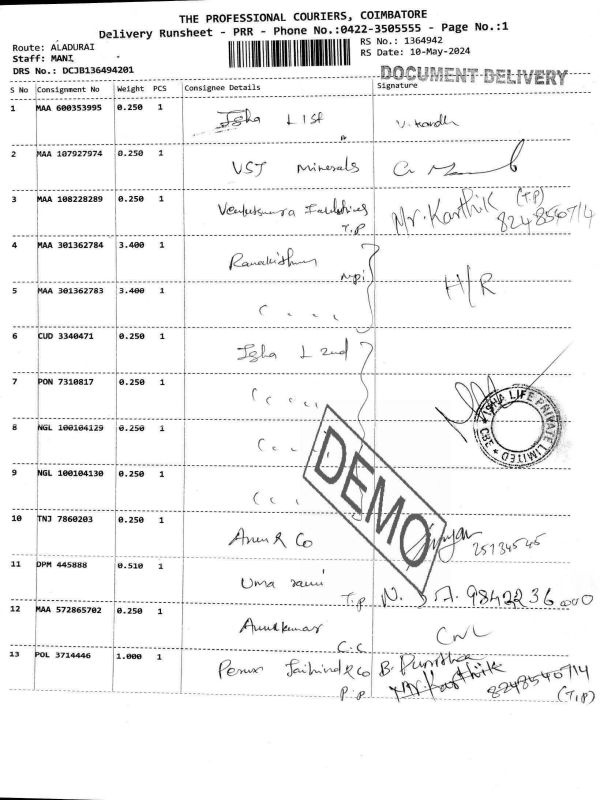 THE PROFESSIONAL COURIERS, COIMBATORE
Delivery Runsheet - PRR - Phone No.:0422-3505555 - Page No.:1
Route: ALADURAI
Staff: MANI
DRS No.: DCJB136494201
RS No.: 1364942
RS Date: 10-May-2024
DOCUMENT DELIVERY
S No Consignment No Weight PCS Consignee Details Signature
1 MAA 600353995 0.250 1 Isha L 1st
2 MAA 107927974 0.250 1 VST Minerals
3 MAA 108228289 0.250 1 Mr. Karthik (T.P)
T.P 8248540714
4 MAA 301362784 3.400 1
H/R
5 MAA 301362783 3.400 1
6 CUD 3340471 0.250 1 Isha L 2nd
7 PON 7310817 0.250 1
ISHA LIFE PRIVATE LIMITED * CBE *
8 NGL 100104129 0.250 1
9 NGL 100104130 0.250 1
DEMO
10 TNJ 7860203 0.250 1 Arun & Co
11 DPM 445888 0.510 1 Uma rani
T.P
12 MAA 572865702 0.250 1 Arulkumar
C.C
13 POL 3714446 1.000 1
P.P Mr. Karthik 8248540714
(T.P)